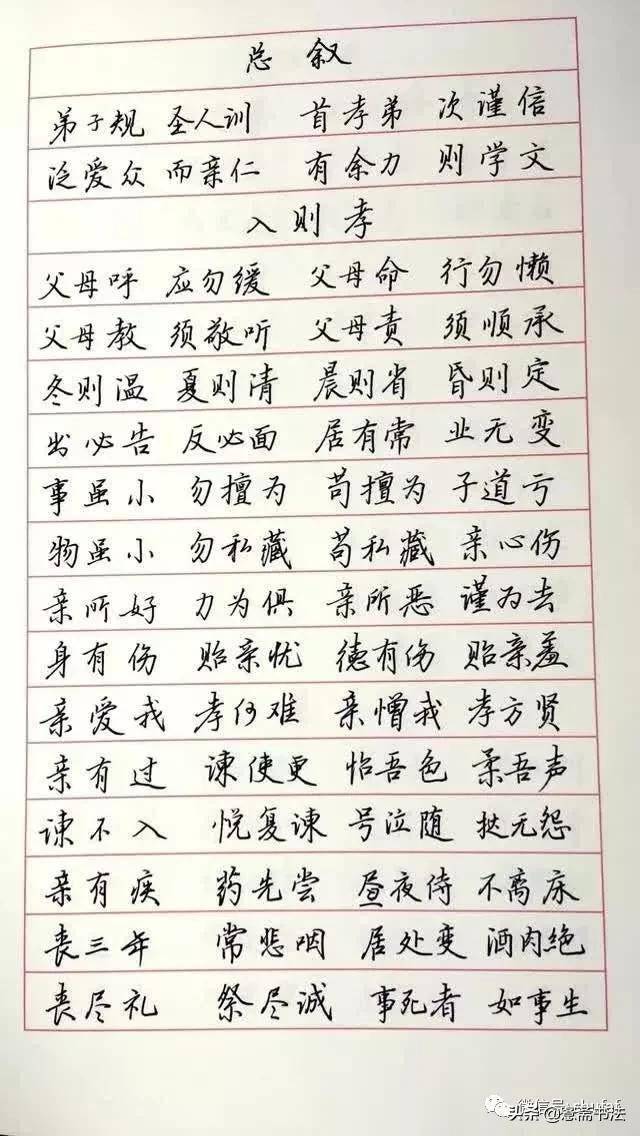 总叙
弟子规 圣人训 首孝弟 次谨信
泛爱众 而亲仁 有余力 则学文
入则孝
父母呼 应勿缓 父母命 行勿懒
父母教 须敬听 父母责 须顺承
冬则温 夏则清 晨则省 昏则定
出必告 反必面 居有常 业无变
事虽小 勿擅为 苟擅为 子道亏
物虽小 勿私藏 苟私藏 亲心伤
亲所好 力为俱 亲所恶 谨为去
身有伤 贻亲忧 德有伤 贻亲羞
亲爱我 孝何难 亲憎我 孝方贤
亲有过 谏使更 怡吾色 柔吾声
谏不入 悦复谏 号泣随 挞无怨
亲有疾 药先尝 昼夜侍 不离床
丧三年 常悲咽 居处变 酒肉绝
丧尽礼 祭尽诚 事死者 如事生
微信号:
头条@憨斋书法